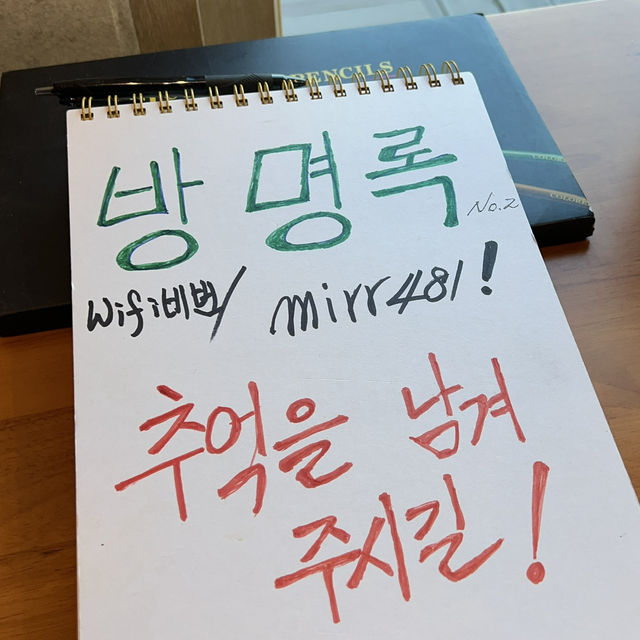 PENCILS
방명록
No.2
wifi비번/ mirr481!
추억을 남겨
주시길!